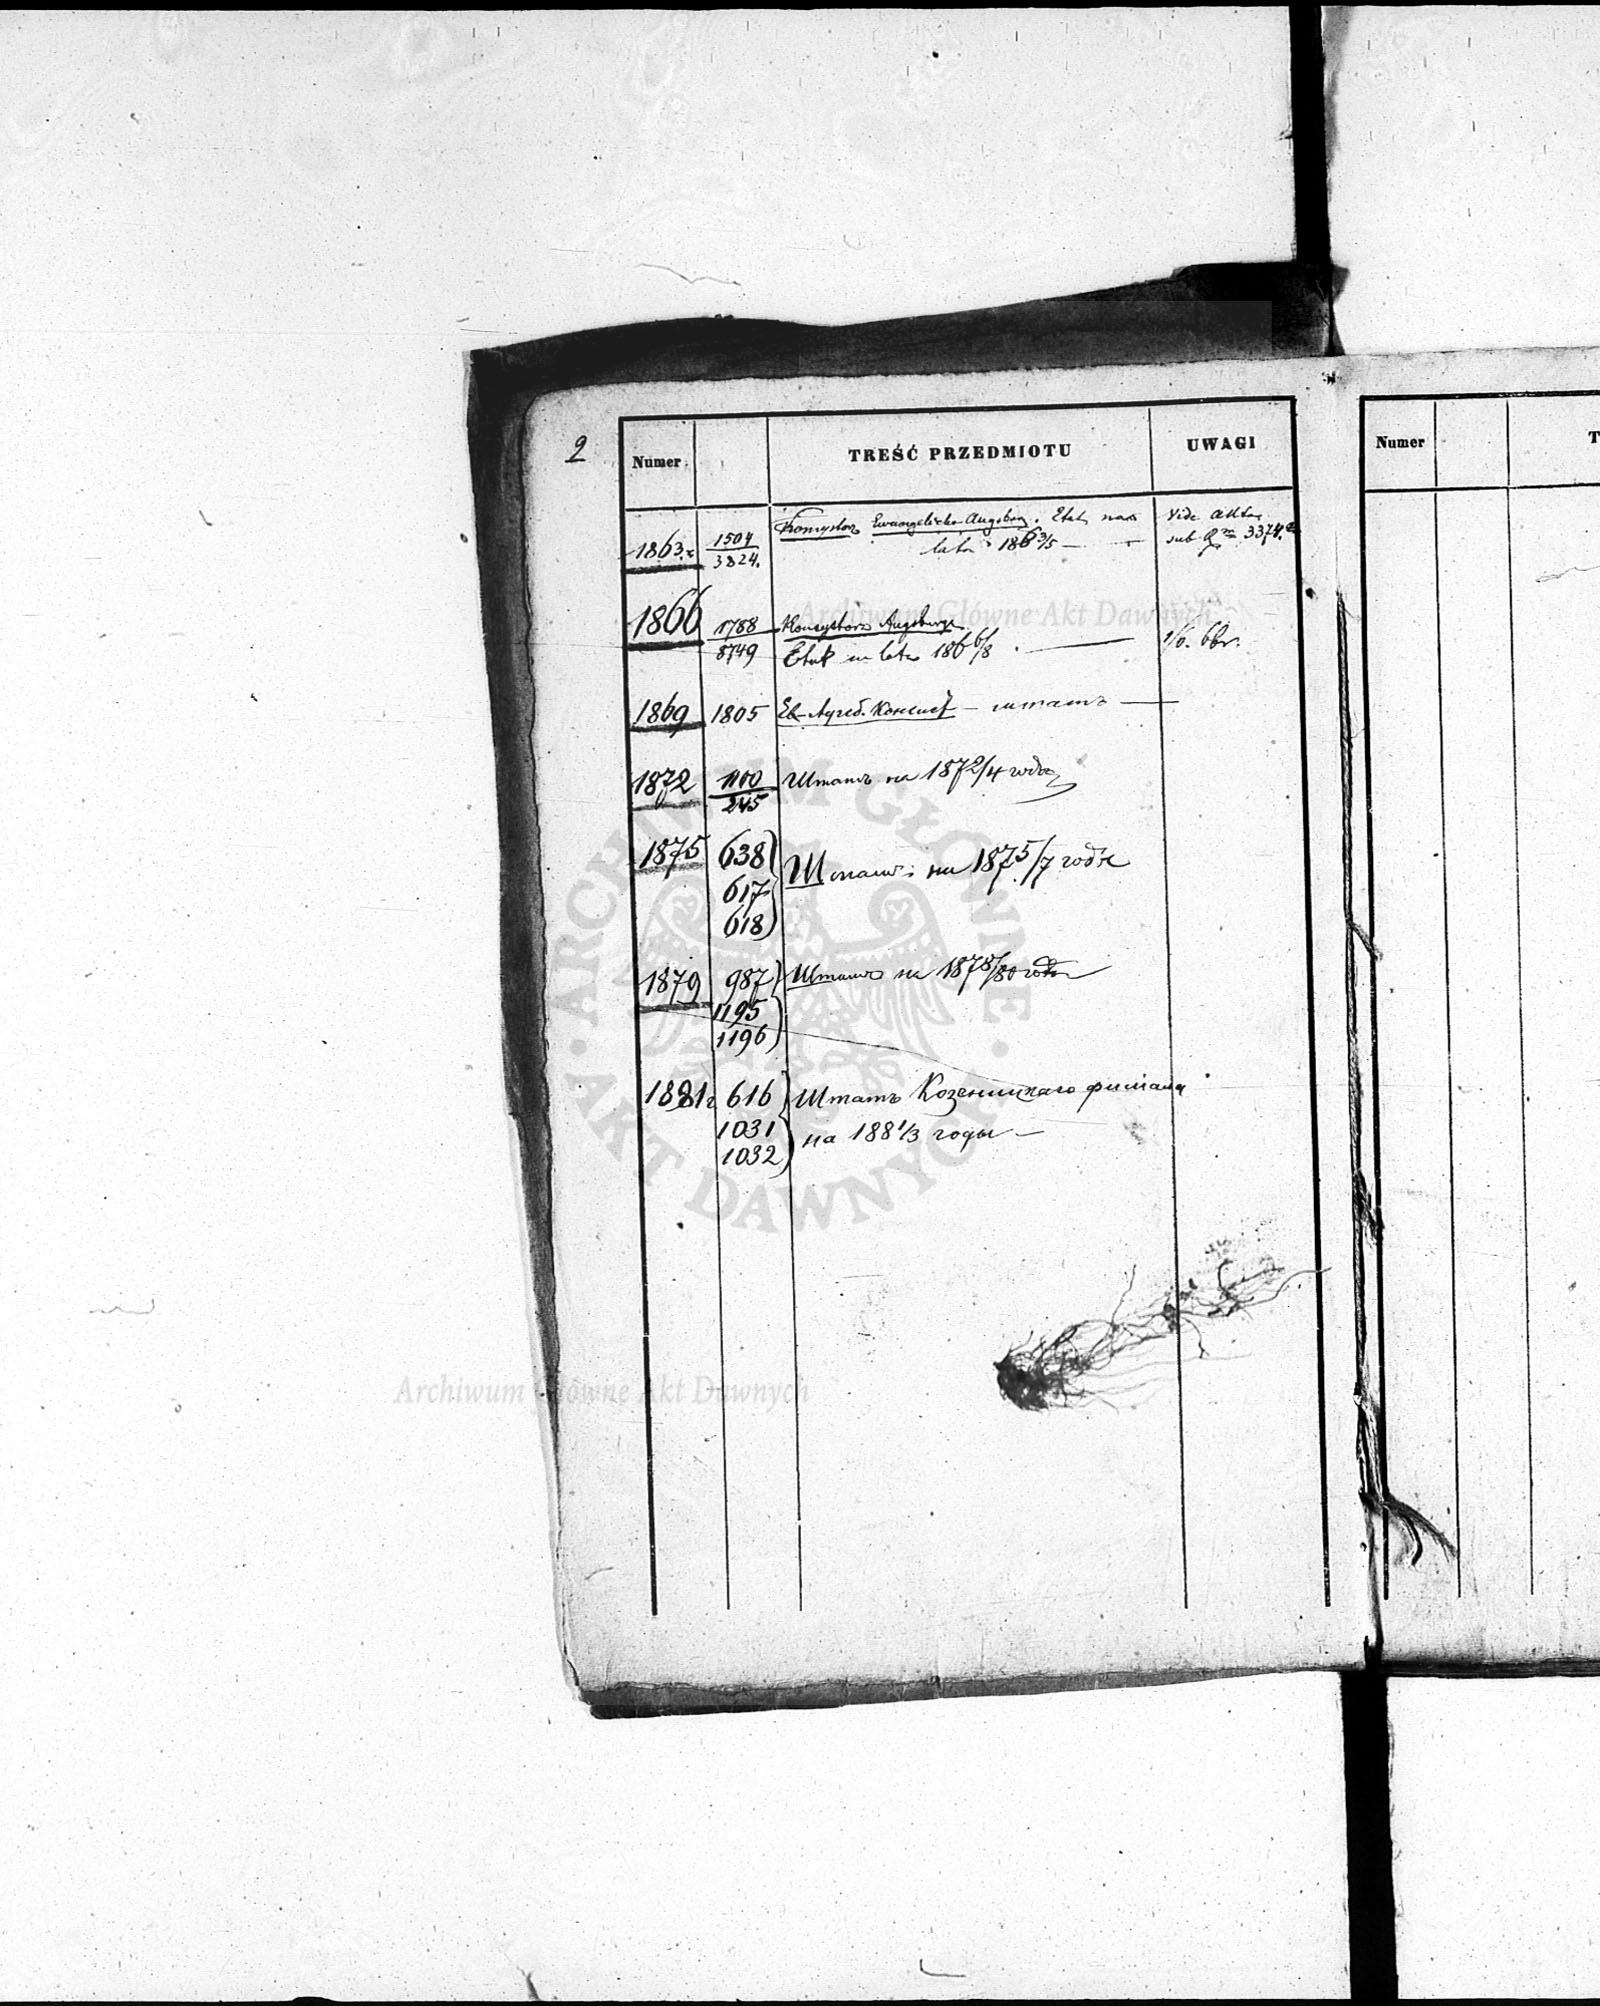 2
Numer TREŚĆ PRZEDMIOTU UWAGI Numer
1863. 1504 Konsystorz Ewangelicko Augsburg. Etat na Vide Akta
3824. lata 1863/5 — sub 3374.
1866 1788 Konsystorz Augsburg.
8749 Etat na lata 1866/8. —
1869 1805 Ев-Аугсб. Консист — штатъ —
1872 1100 Штатъ на 1872/4 года
245
1875 638 Штатъ на 1875/7 годы
617
618
1879 987 Штатъ на 1878/80 годы
1195
1196
1881г 616 Штатъ Козеницкаго филіала
1031 на 1881/3 годы —
1032
Archiwum Główne Akt Dawnych
ARCHIWUM GŁÓWNE
AKT DAWNYCH
Archiwum Główne Akt Dawnych